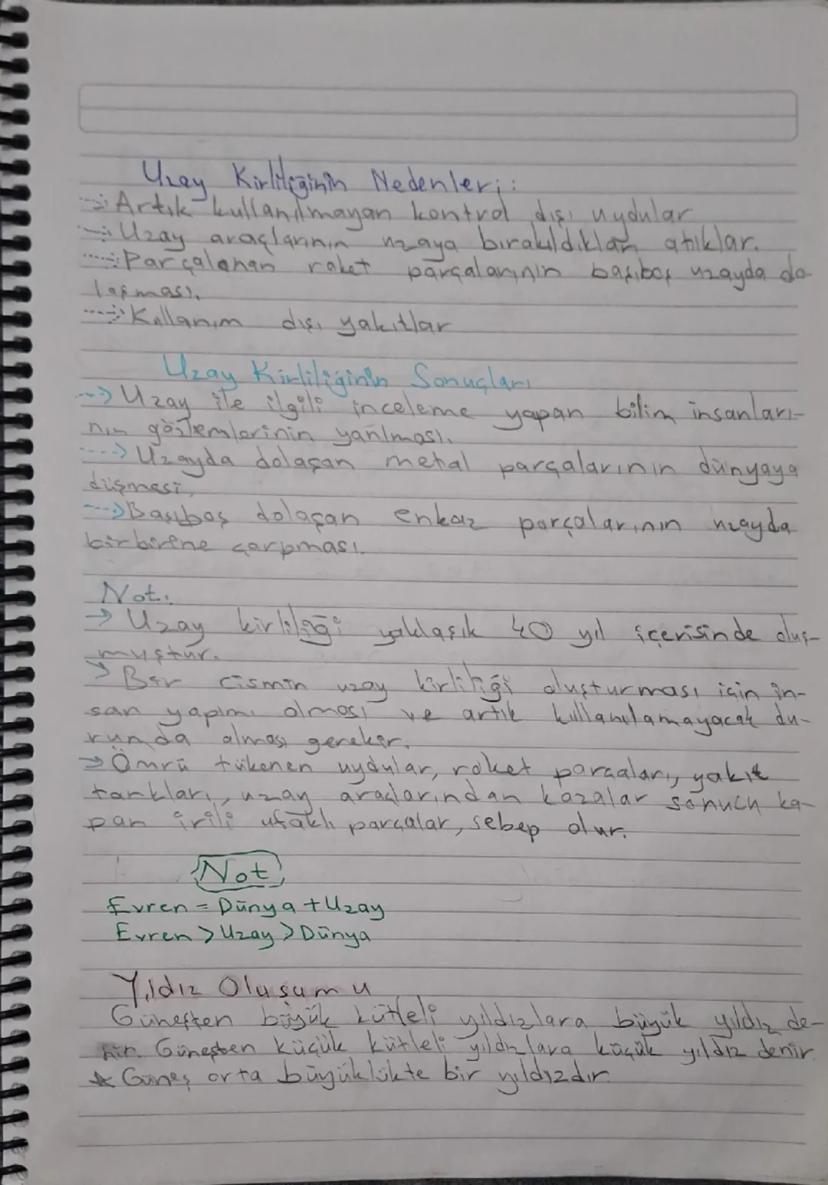 Uzay Kirliliğinin Nedenleri:
→ Artık kullanılmayan kontrol dışı uydular
→ Uzay araçlarının uzaya bıraktıkları atıklar.
→ Parçalanan roket parçalarının başıboş uzayda do-
laşması.
→ Kullanım dışı yakıtlar
Uzay Kirliliğinin Sonuçları
→ Uzay ile ilgili inceleme yapan bilim insanları-
nın gözlemlerinin yanılması.
→ Uzayda dolaşan metal parçalarının dünyaya
düşmesi.
→ Başıboş dolaşan enkaz parçalarının uzayda
birbirine çarpması.
Not:
→ Uzay kirliliği yaklaşık 40 yıl içerisinde oluş-
muştur.
→ Bir cismin uzay kirliliği oluşturması için in-
san yapımı olması ve artık kullanılamayacak du-
rumda olması gerekir.
→ Ömrü tükenen uydular, roket parçaları, yakıt
tankları, uzay araçlarından kazalar sonucu ko-
pan irili ufaklı parçalar, sebep olur.
Not
Evren = Dünya + Uzay
Evren > Uzay > Dünya
Yıldız Oluşumu
Güneşten büyük kütleli yıldızlara büyük yıldız de-
nir. Güneşten küçük kütleli yıldızlara küçük yıldız denir.
* Güneş orta büyüklükte bir yıldızdır.